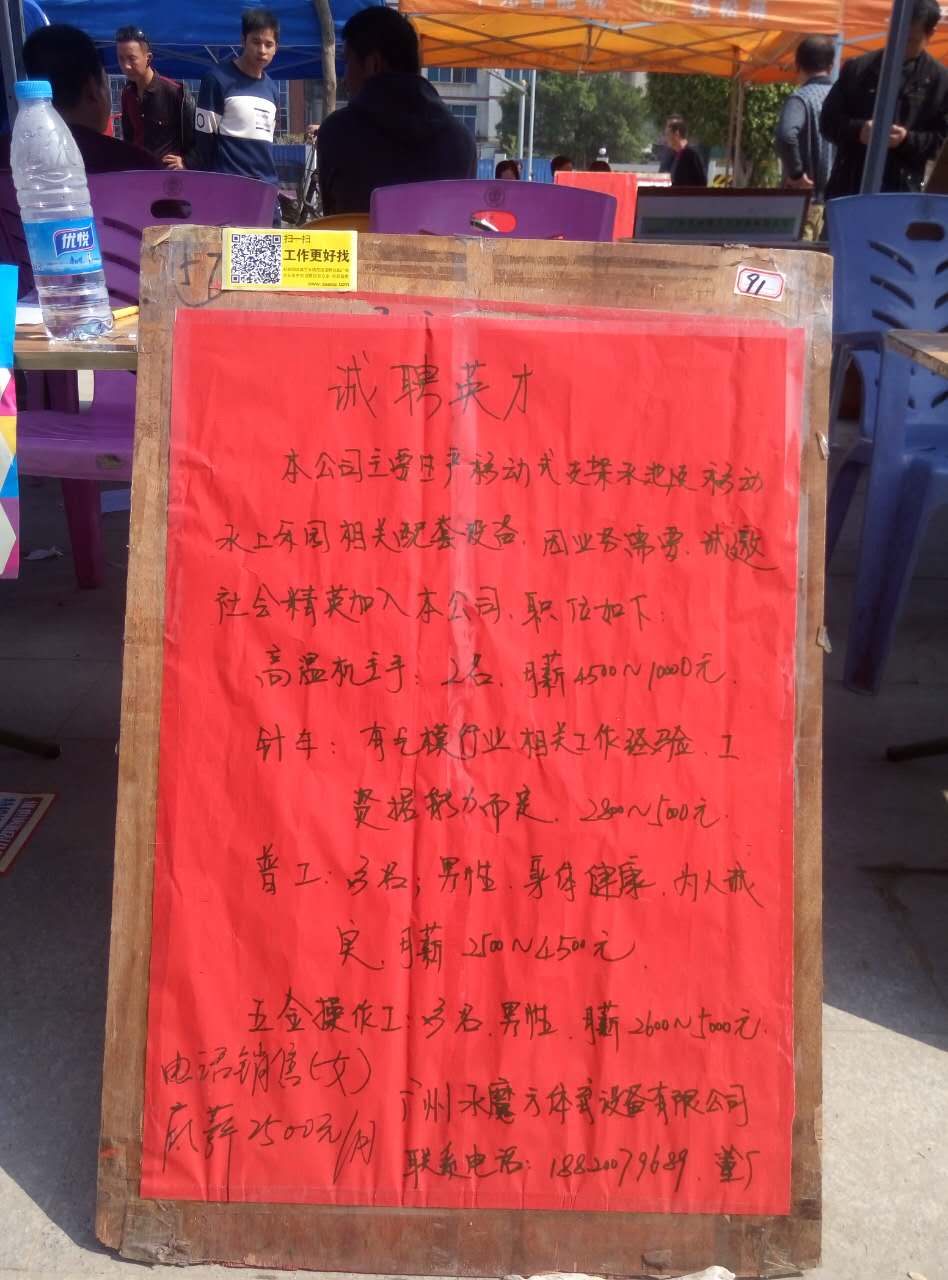 优悦
扫一扫
工作更好找
91
诚聘英才
本公司主要生产移动式支架水池及移动
水上乐园相关配套设备.因业务需要.诚邀
社会精英加入本公司.职位如下:
高温机主手: 2名.月薪4500~10000元.
针车: 有气模行业相关工作经验.工
资据能力而定.2800~5000元.
普工: 多名;男性.身体健康.为人诚
实.月薪 2500~4500元.
五金操作工: 多名.男性.月薪2600~5000元.
电话销售(女)
底薪2500元/月
广州水魔方体育设备有限公司
联系电话: 18820079689. 董厂